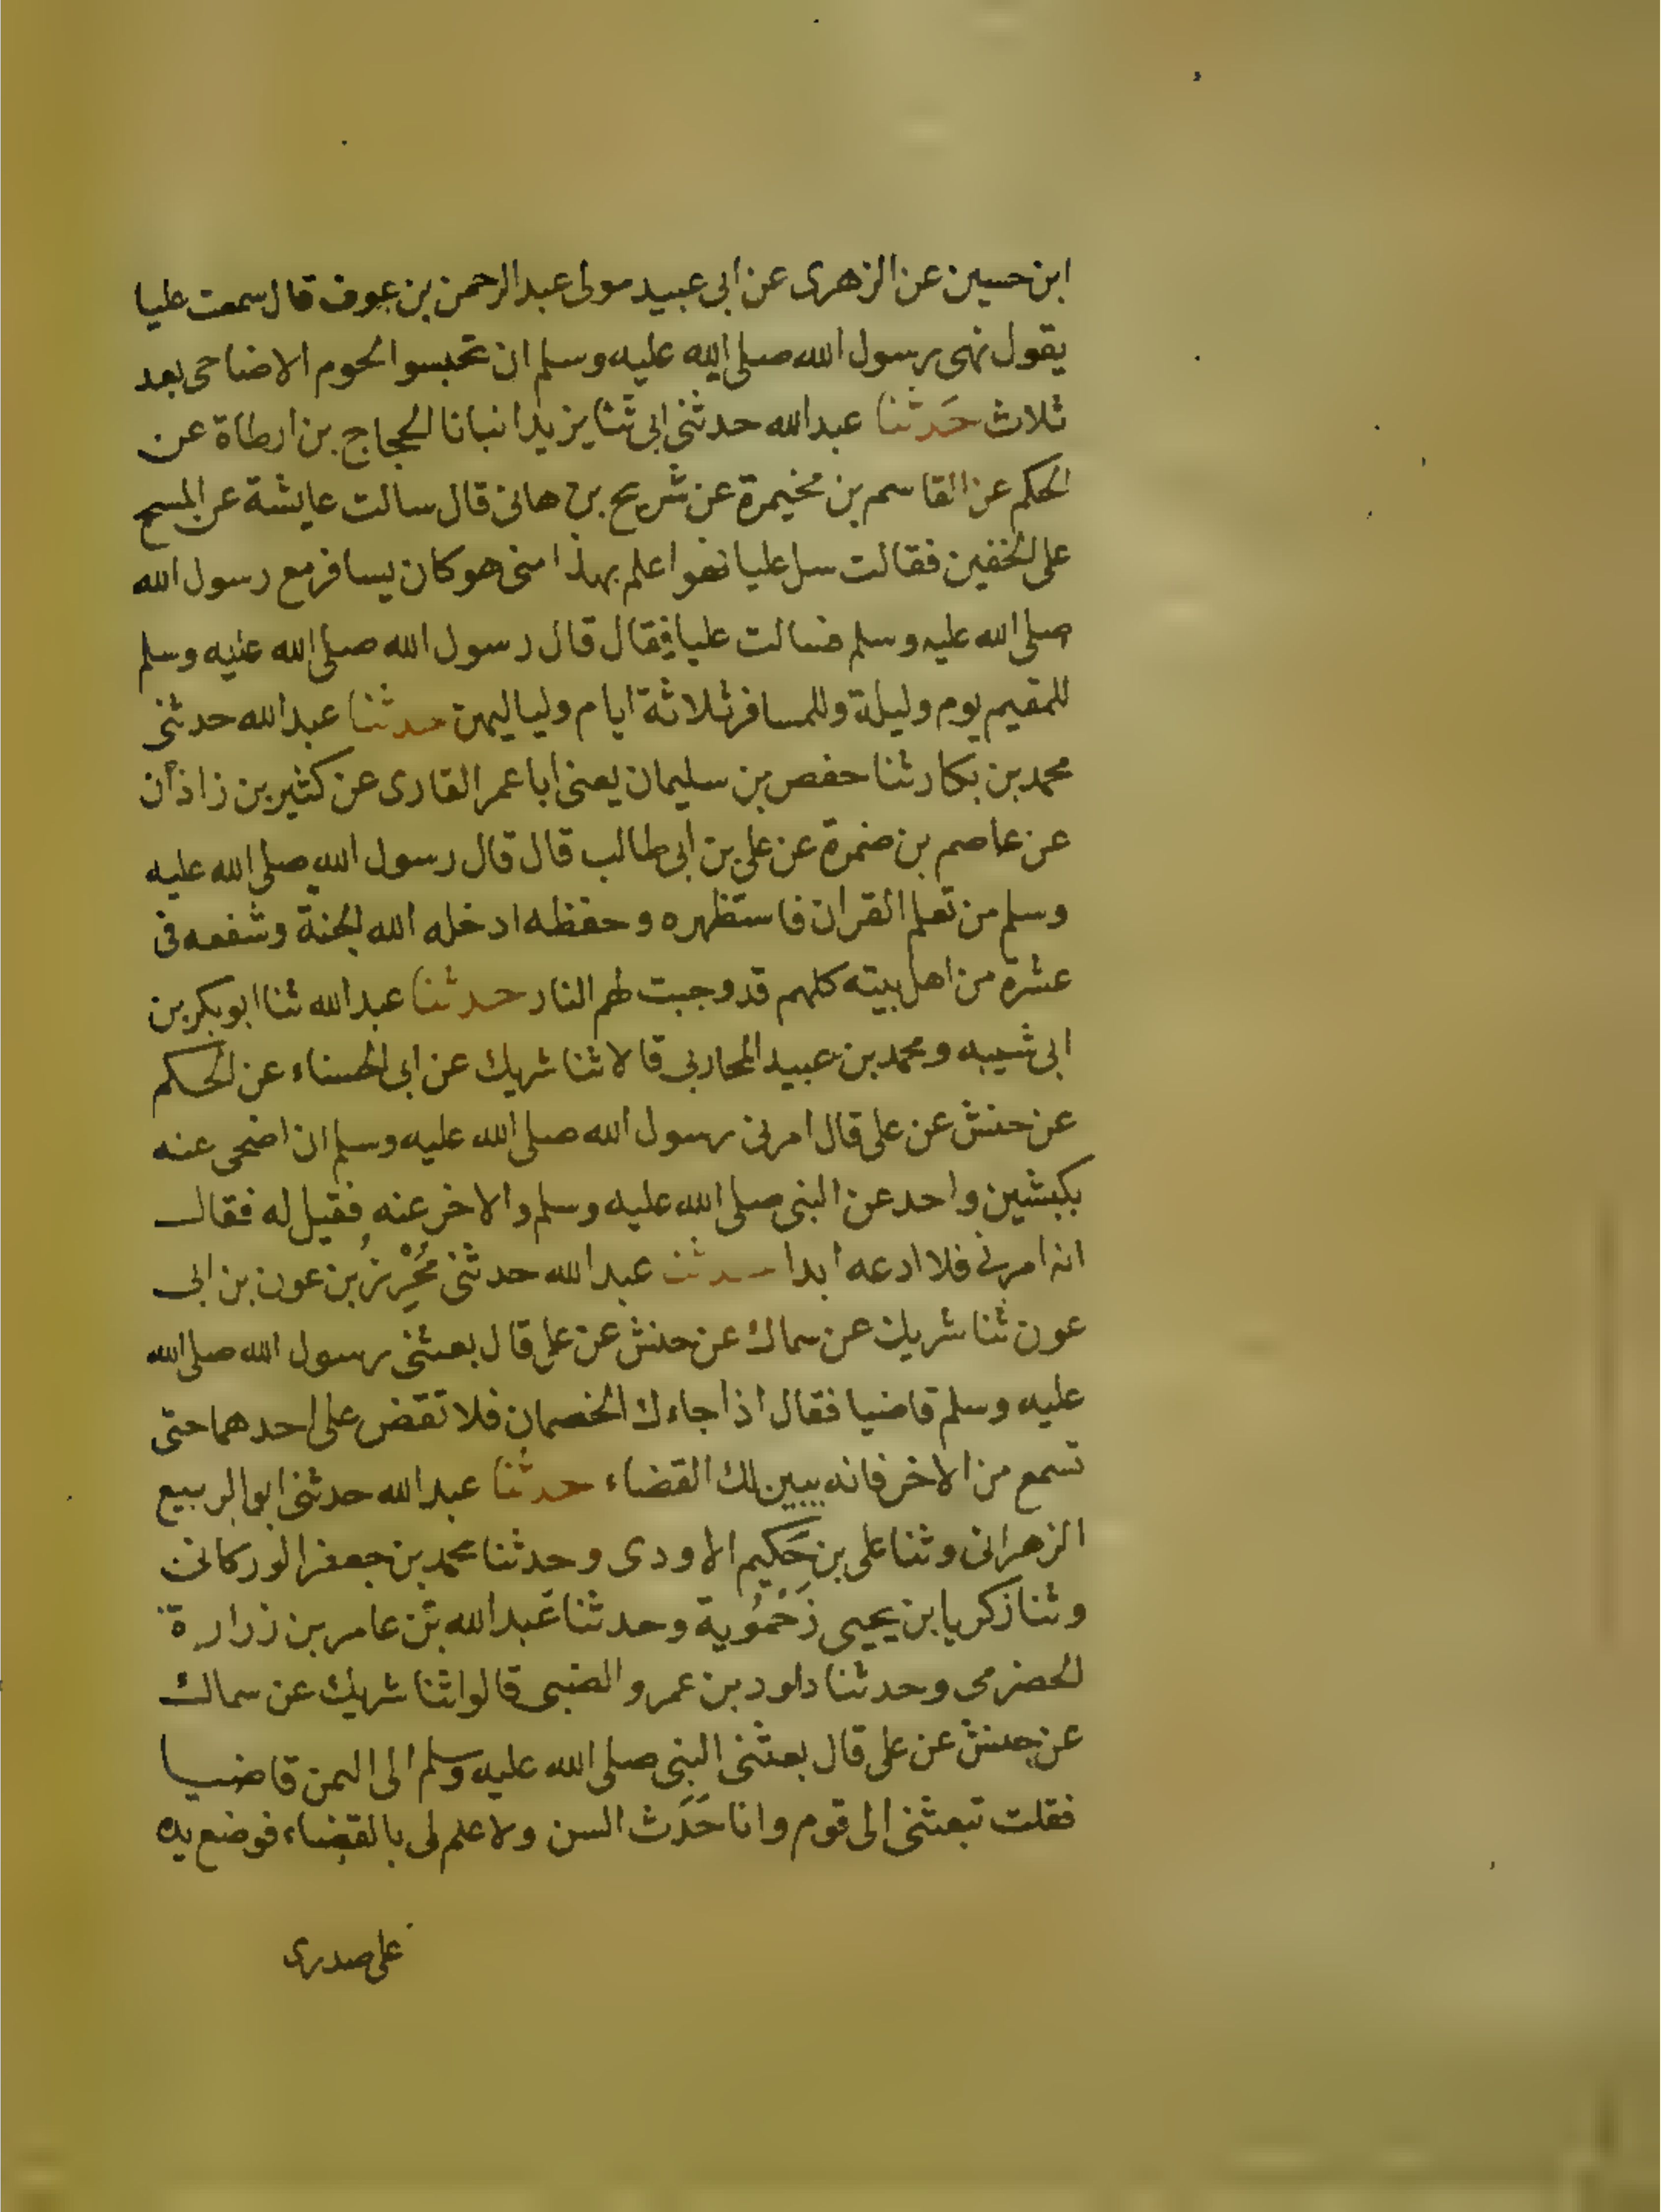 ابن حسين عن الزهرى عن ابى عبيد مولى عبد الرحمن بن عوف قال سمعت عليا
يقول نهى رسول الله صلى الله عليه وسلم ان تحبسوا لحوم الاضاحى بعد
ثلاث حَدثنا عبد الله حدثنى ابى ثنا يزيد انبانا الحجاج بن ارطاة عن
الحكم عن القاسم بن مخيمرة عن شريح بن هانى قال سالت عايشة عن المسح
على الخفين فقالت سل عليا فهو اعلم بهذا منى هو كان يسافر مع رسول الله
صلى الله عليه وسلم فسالت عليا فقال قال رسول الله صلى الله عليه وسلم
للمقيم يوم وليلة وللمسافر ثلاثة ايام ولياليهن حدثنا عبد الله حدثنى
محمد بن بكار ثنا حفص بن سليمان يعنى ابا عمر القارى عن كثير بن زاذان
عن عاصم بن ضمرة عن على بن ابى طالب قال قال رسول الله صلى الله عليه
وسلم من تعلم القران فاستظهره وحفظه ادخله الله الجنة وشفعه فى
عشرة من اهل بيته كلهم قد وجبت لهم النار حدثنا عبد الله ثنا ابو بكر بن
ابى شيبه ومحمد بن عبيد المحاربى قالا ثنا شريك عن ابى الحسناء عن الحكم
عن حنش عن على قال امرنى رسول الله صلى الله عليه وسلم ان اضحى عنه
بكبشين واحد عن النبى صلى الله عليه وسلم والاخر عنه فقيل له فقال
انه امرنى فلا ادعه ابدا حدثنا عبد الله حدثنى مُحْرِزُ بن عون بن ابى
عون ثنا شريك عن سماك عن حنش عن على قال بعثنى رسول الله صلى الله
عليه وسلم قاضيا فقال اذا جاءك الخصمان فلا تقض على احدهما حتى
تسمع من الاخر فانه يبين لك القضاء حدثنا عبد الله حدثنى ابو الربيع
الزهرانى وثنا على بن حَكِيم الاودى وحدثنا محمد بن جعفر الوركانى
وثنا زكريا بن يحيى زَحْمُوية وحدثنا عبد الله بن عامر بن زرارة
الحضرمى وحدثنا داود بن عمرو الضبى قالوا ثنا شريك عن سماك
عن حنش عن على قال بعثنى النبى صلى الله عليه وسلم الى اليمن قاضيا
فقلت تبعثنى الى قوم وانا حَدَث السن ولا علم لى بالقضاء فوضع يده
على صدرى